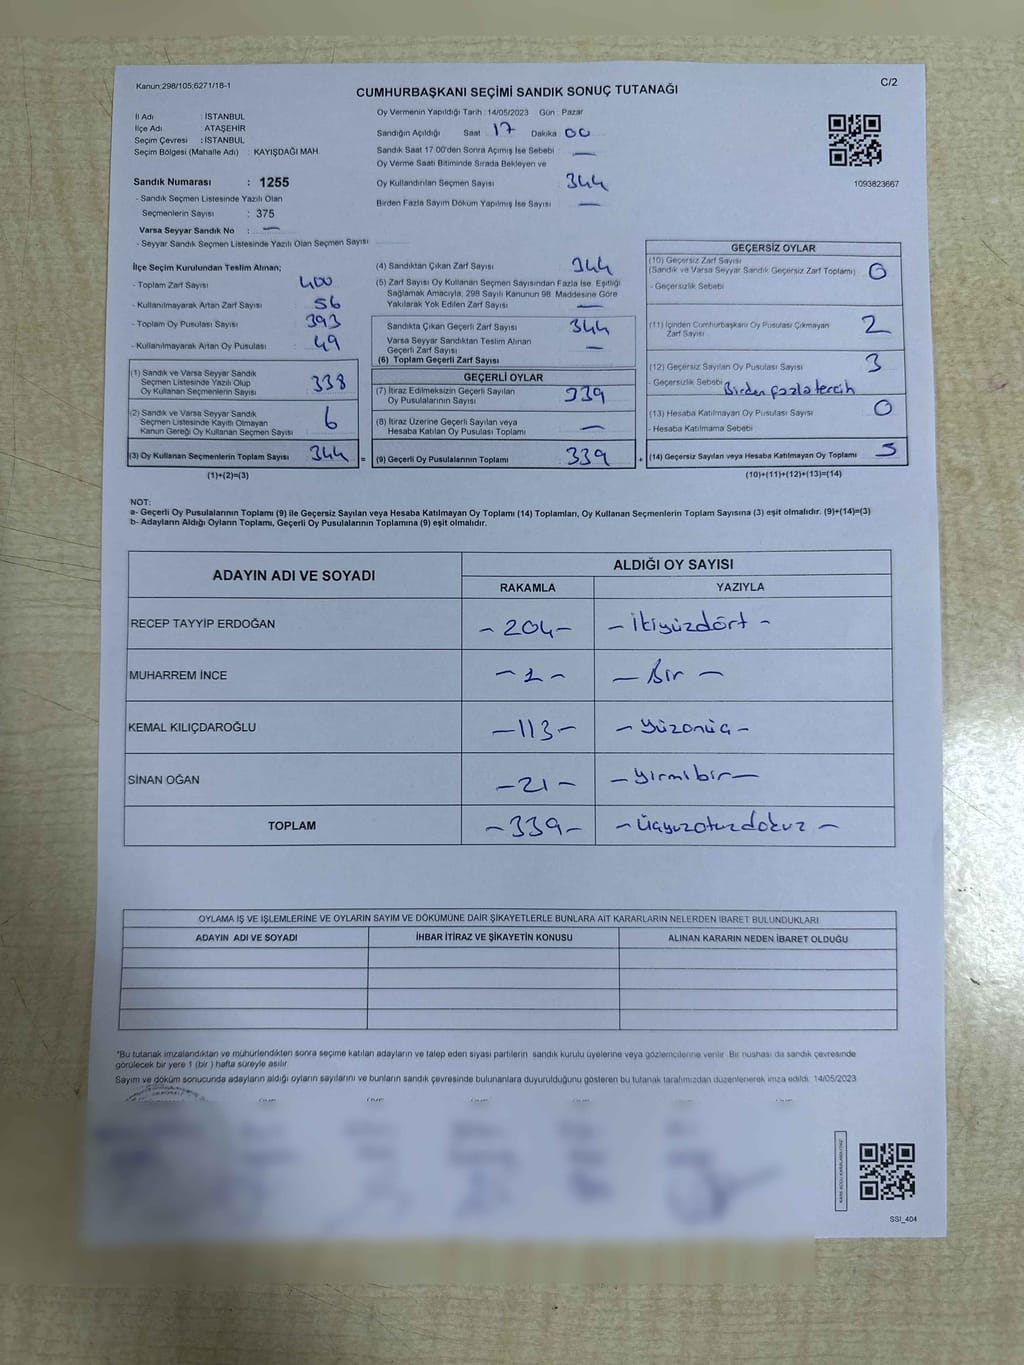 Kanun;298/105;6271/18-1
C/2
CUMHURBAŞKANI SEÇİMİ SANDIK SONUÇ TUTANAĞI
İl Adı : İSTANBUL
İlçe Adı : ATAŞEHİR
Seçim Çevresi : İSTANBUL
Seçim Bölgesi (Mahalle Adı) : KAYIŞDAĞI MAH.
Sandık Numarası : 1255
- Sandık Seçmen Listesinde Yazılı Olan
Seçmenlerin Sayısı : 375
Varsa Seyyar Sandık No : —
- Seyyar Sandık Seçmen Listesinde Yazılı Olan Seçmen Sayısı
Oy Vermenin Yapıldığı Tarih : 14/05/2023 Gün : Pazar
Sandığın Açıldığı Saat 17 Dakika 00
Sandık Saat 17 00'den Sonra Açımış İse Sebebi : —
Oy Verme Saati Bitiminde Sırada Bekleyen ve
Oy Kullandırılan Seçmen Sayısı 344
Birden Fazla Sayım Döküm Yapılmış İse Sayısı : —
1093823667
İlçe Seçim Kurulundan Teslim Alınan;
- Toplam Zarf Sayısı : 400
- Kullanılmayarak Artan Zarf Sayısı : 56
- Toplam Oy Pusulası Sayısı : 393
- Kullanılmayarak Artan Oy Pusulası : 49
(1) Sandık ve Varsa Seyyar Sandık
Seçmen Listesinde Yazılı Olup
Oy Kullanan Seçmenlerin Sayısı 338
(2) Sandık ve Varsa Seyyar Sandık
Seçmen Listesinde Kayıtlı Olmayan
Kanun Gereği Oy Kullanan Seçmen Sayısı 6
(3) Oy Kullanan Seçmenlerin Toplam Sayısı 344 =
(1)+(2)=(3)
(4) Sandıktan Çıkan Zarf Sayısı 344
(5) Zarf Sayısı Oy Kullanan Seçmen Sayısından Fazla İse, Eşitliği
Sağlamak Amacıyla, 298 Sayılı Kanunun 98 Maddesine Göre
Yakılarak Yok Edilen Zarf Sayısı —
Sandıkta Çıkan Geçerli Zarf Sayısı 344
Varsa Seyyar Sandıktan Teslim Alınan
Geçerli Zarf Sayısı —
(6) Toplam Geçerli Zarf Sayısı
GEÇERLİ OYLAR
(7) İtiraz Edilmeksizin Geçerli Sayılan
Oy Pusulalarının Sayısı 339
(8) İtiraz Üzerine Geçerli Sayılan veya
Hesaba Katılan Oy Pusulası Toplamı —
(9) Geçerli Oy Pusulalarının Toplamı 339 +
GEÇERSİZ OYLAR
(10) Geçersiz Zarf Sayısı
(Sandık ve Varsa Seyyar Sandık Geçersiz Zarf Toplamı) 0
- Geçersizlik Sebebi
(11) İçinden Cumhurbaşkanı Oy Pusulası Çıkmayan
Zarf Sayısı 2
(12) Geçersiz Sayılan Oy Pusulası Sayısı 3
- Geçersizlik Sebebi Birden fazla tercih
(13) Hesaba Katılmayan Oy Pusulası Sayısı 0
- Hesaba Katılmama Sebebi
(14) Geçersiz Sayılan veya Hesaba Katılmayan Oy Toplamı 5
(10)+(11)+(12)+(13)=(14)
NOT:
a- Geçerli Oy Pusulalarının Toplamı (9) ile Geçersiz Sayılan veya Hesaba Katılmayan Oy Toplamı (14) Toplamları, Oy Kullanan Seçmenlerin Toplam Sayısına (3) eşit olmalıdır. (9)+(14)=(3)
b- Adayların Aldığı Oyların Toplamı, Geçerli Oy Pusulalarının Toplamına (9) eşit olmalıdır.
ADAYIN ADI VE SOYADI
ALDIĞI OY SAYISI
RAKAMLA YAZIYLA
RECEP TAYYİP ERDOĞAN – 204 – – İkiyüzdört –
MUHARREM İNCE – 1 – – Bir –
KEMAL KILIÇDAROĞLU – 113 – – Yüzonüç –
SİNAN OĞAN – 21 – – Yirmibir –
TOPLAM – 339 – – Üçyüzotuzdokuz –
OYLAMA İŞ VE İŞLEMLERİNE VE OYLARIN SAYIM VE DÖKÜMÜNE DAİR ŞİKAYETLERLE BUNLARA AİT KARARLARIN NELERDEN İBARET BULUNDUKLARI
ADAYIN ADI VE SOYADI İHBAR İTİRAZ VE ŞİKAYETİN KONUSU ALINAN KARARIN NEDEN İBARET OLDUĞU
*Bu tutanak imzalandıktan ve mühürlendikten sonra seçime katılan adayların ve talep eden siyasi partilerin sandık kurulu üyelerine veya gözlemcilerine verilir. Bir nüshası da sandık çevresinde
görülecek bir yere 1 (bir) hafta süreyle asılır
Sayım ve döküm sonucunda adayların aldığı oyların sayılarını ve bunların sandık çevresinde bulunanlara duyurulduğunu gösteren bu tutanak tarafımızdan düzenlenerek imza edildi. 14/05/2023
SSI_404